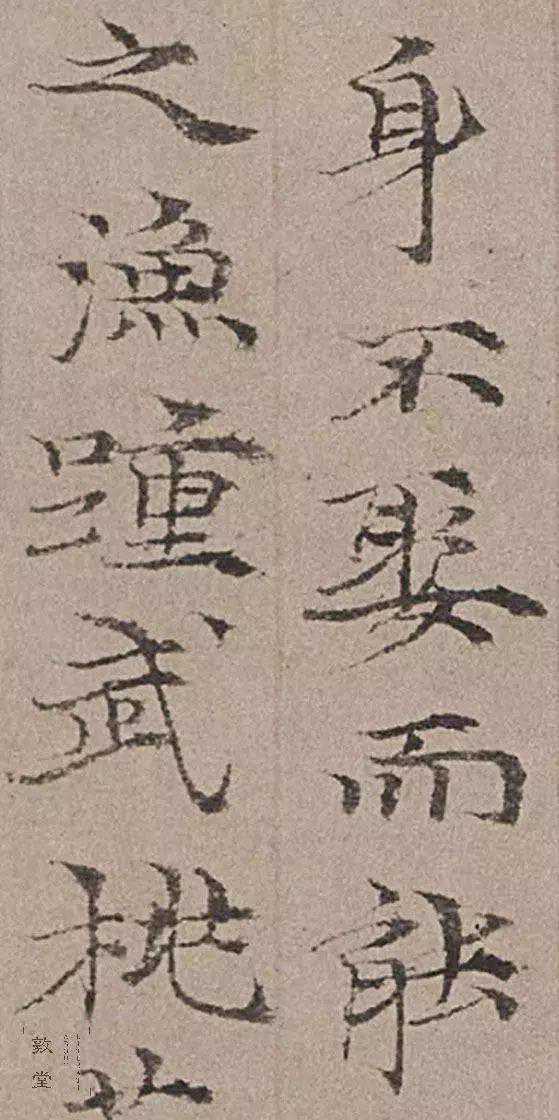 身不娶而能
之漁踵武桃
敦堂